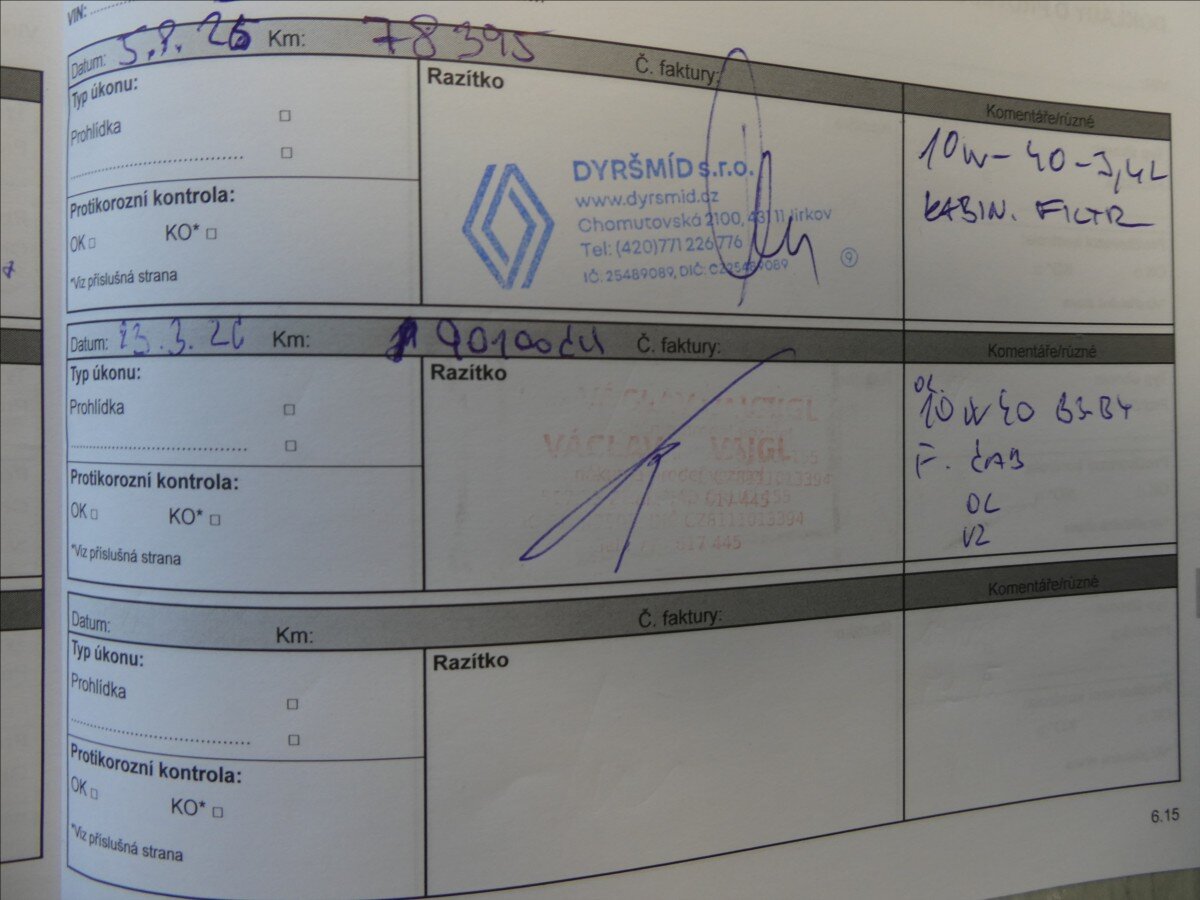 VIN:
Datum: 5.8.25 Km: 78395 Č. faktury:
Typ úkonu:
Prohlídka
Protikorozní kontrola:
OK KO*
*Viz příslušná strana
Razítko
DYRŠMÍD s.r.o.
www.dyrsmid.cz
Chomutovská 2100, 431 11 Jirkov
Tel: (420)771 226 776
IČ: 25489089, DIČ: CZ25489089
9
Komentáře/různé
10W-40-5,4L
KABIN. FILTR
Datum: 23.3.26 Km: 90100 Č. faktury:
Typ úkonu:
Prohlídka
Protikorozní kontrola:
OK KO*
*Viz příslušná strana
Razítko
VÁCLAV
DIČ CZ8111013394
617 445
Komentáře/různé
OL
10W40 B3B4
F. KAB
OL
VZ
Datum: Km: Č. faktury:
Typ úkonu:
Prohlídka
Protikorozní kontrola:
OK KO*
*Viz příslušná strana
Razítko
Komentáře/různé
6.15